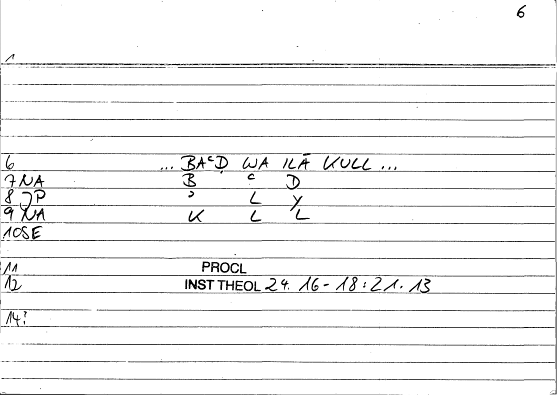 6
1
6 ... BAᶜḌ WA ILĀ KULL ...
7 NA B ᶜ Ḍ
8 JP ʾ L Y
9 NA K L L
10 SE
11 PROCL
12 INST THEOL 24. 16-18 : 21. 13
14?